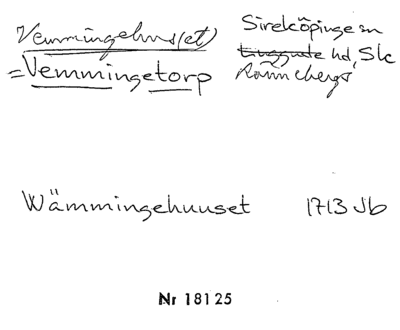 Vemmingehus(et)
= Vemmingetorp
Sireköpinge sn
Luggude hd, Sk
Rönnebergs
Wämmingehuuset 1713 Jb
Nr 18125